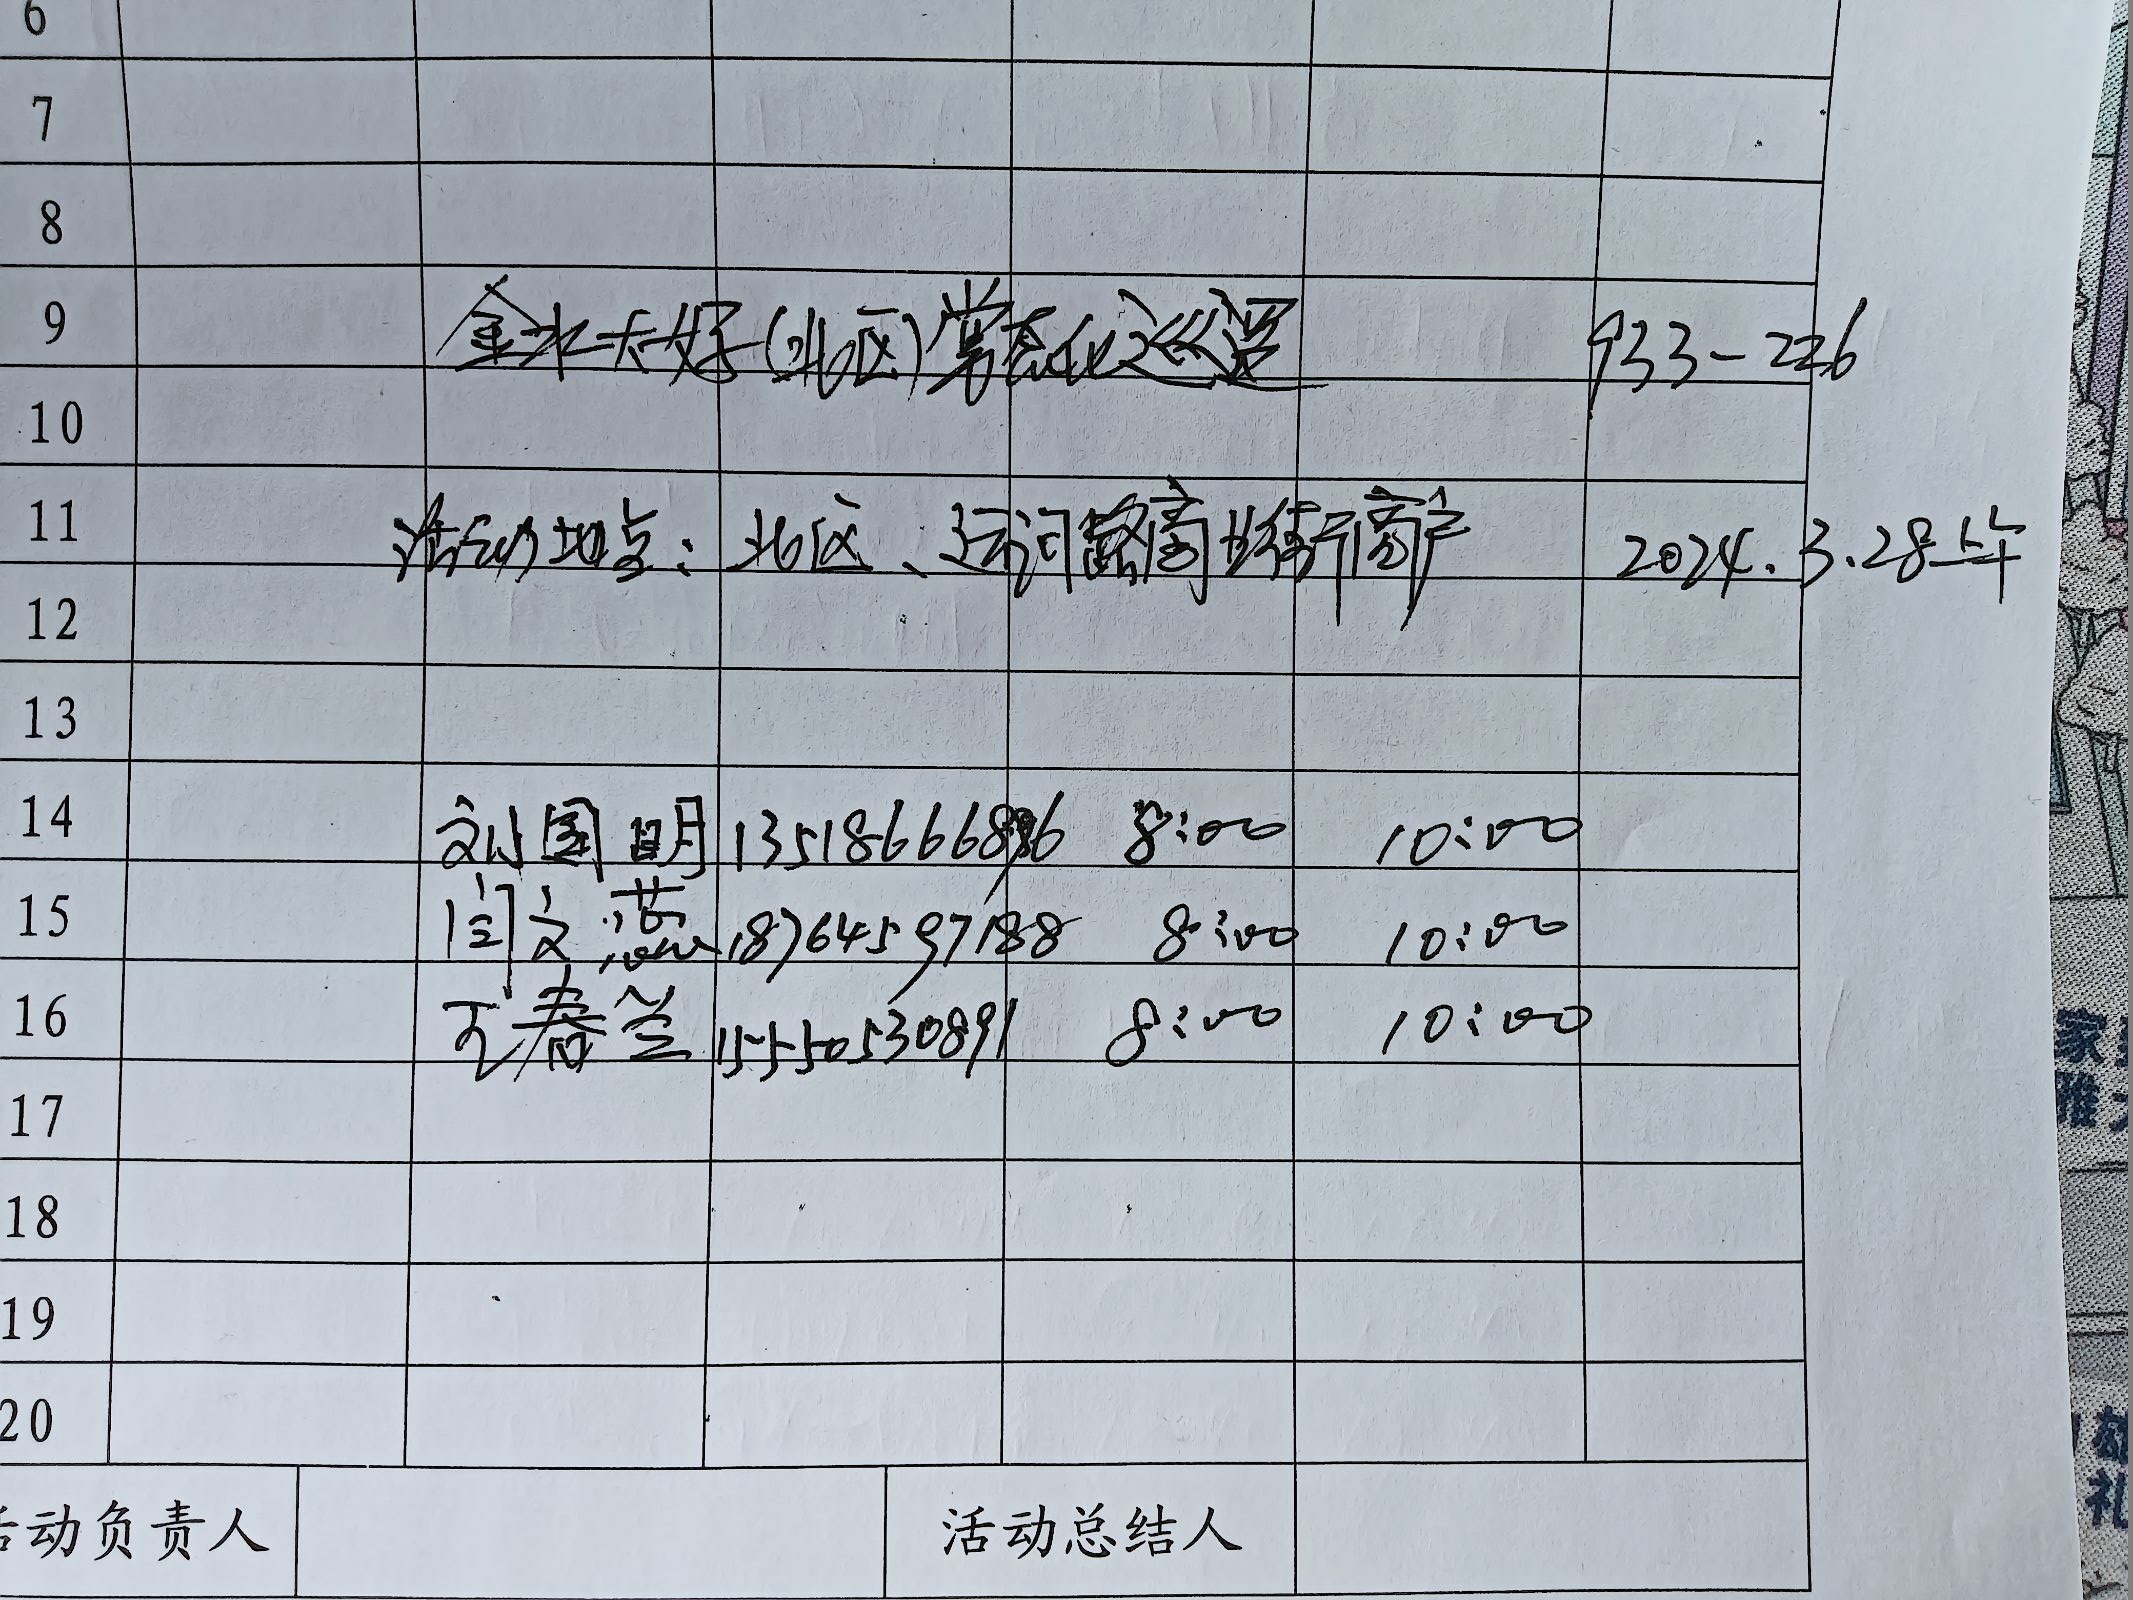 6
7
8
9 金水大好(北区)常态化巡逻 933-226
10
11 活动地点: 北区、运河路商 街商户 2024.3.28上午
12
13
14 刘国明 135186668 6 8:00 10:00
15 闫文 18764597188 8:00 10:00
16 王春兰 15550530891 8:00 10:00
17
18
19
20
活动负责人 活动总结人
家
雅
礼